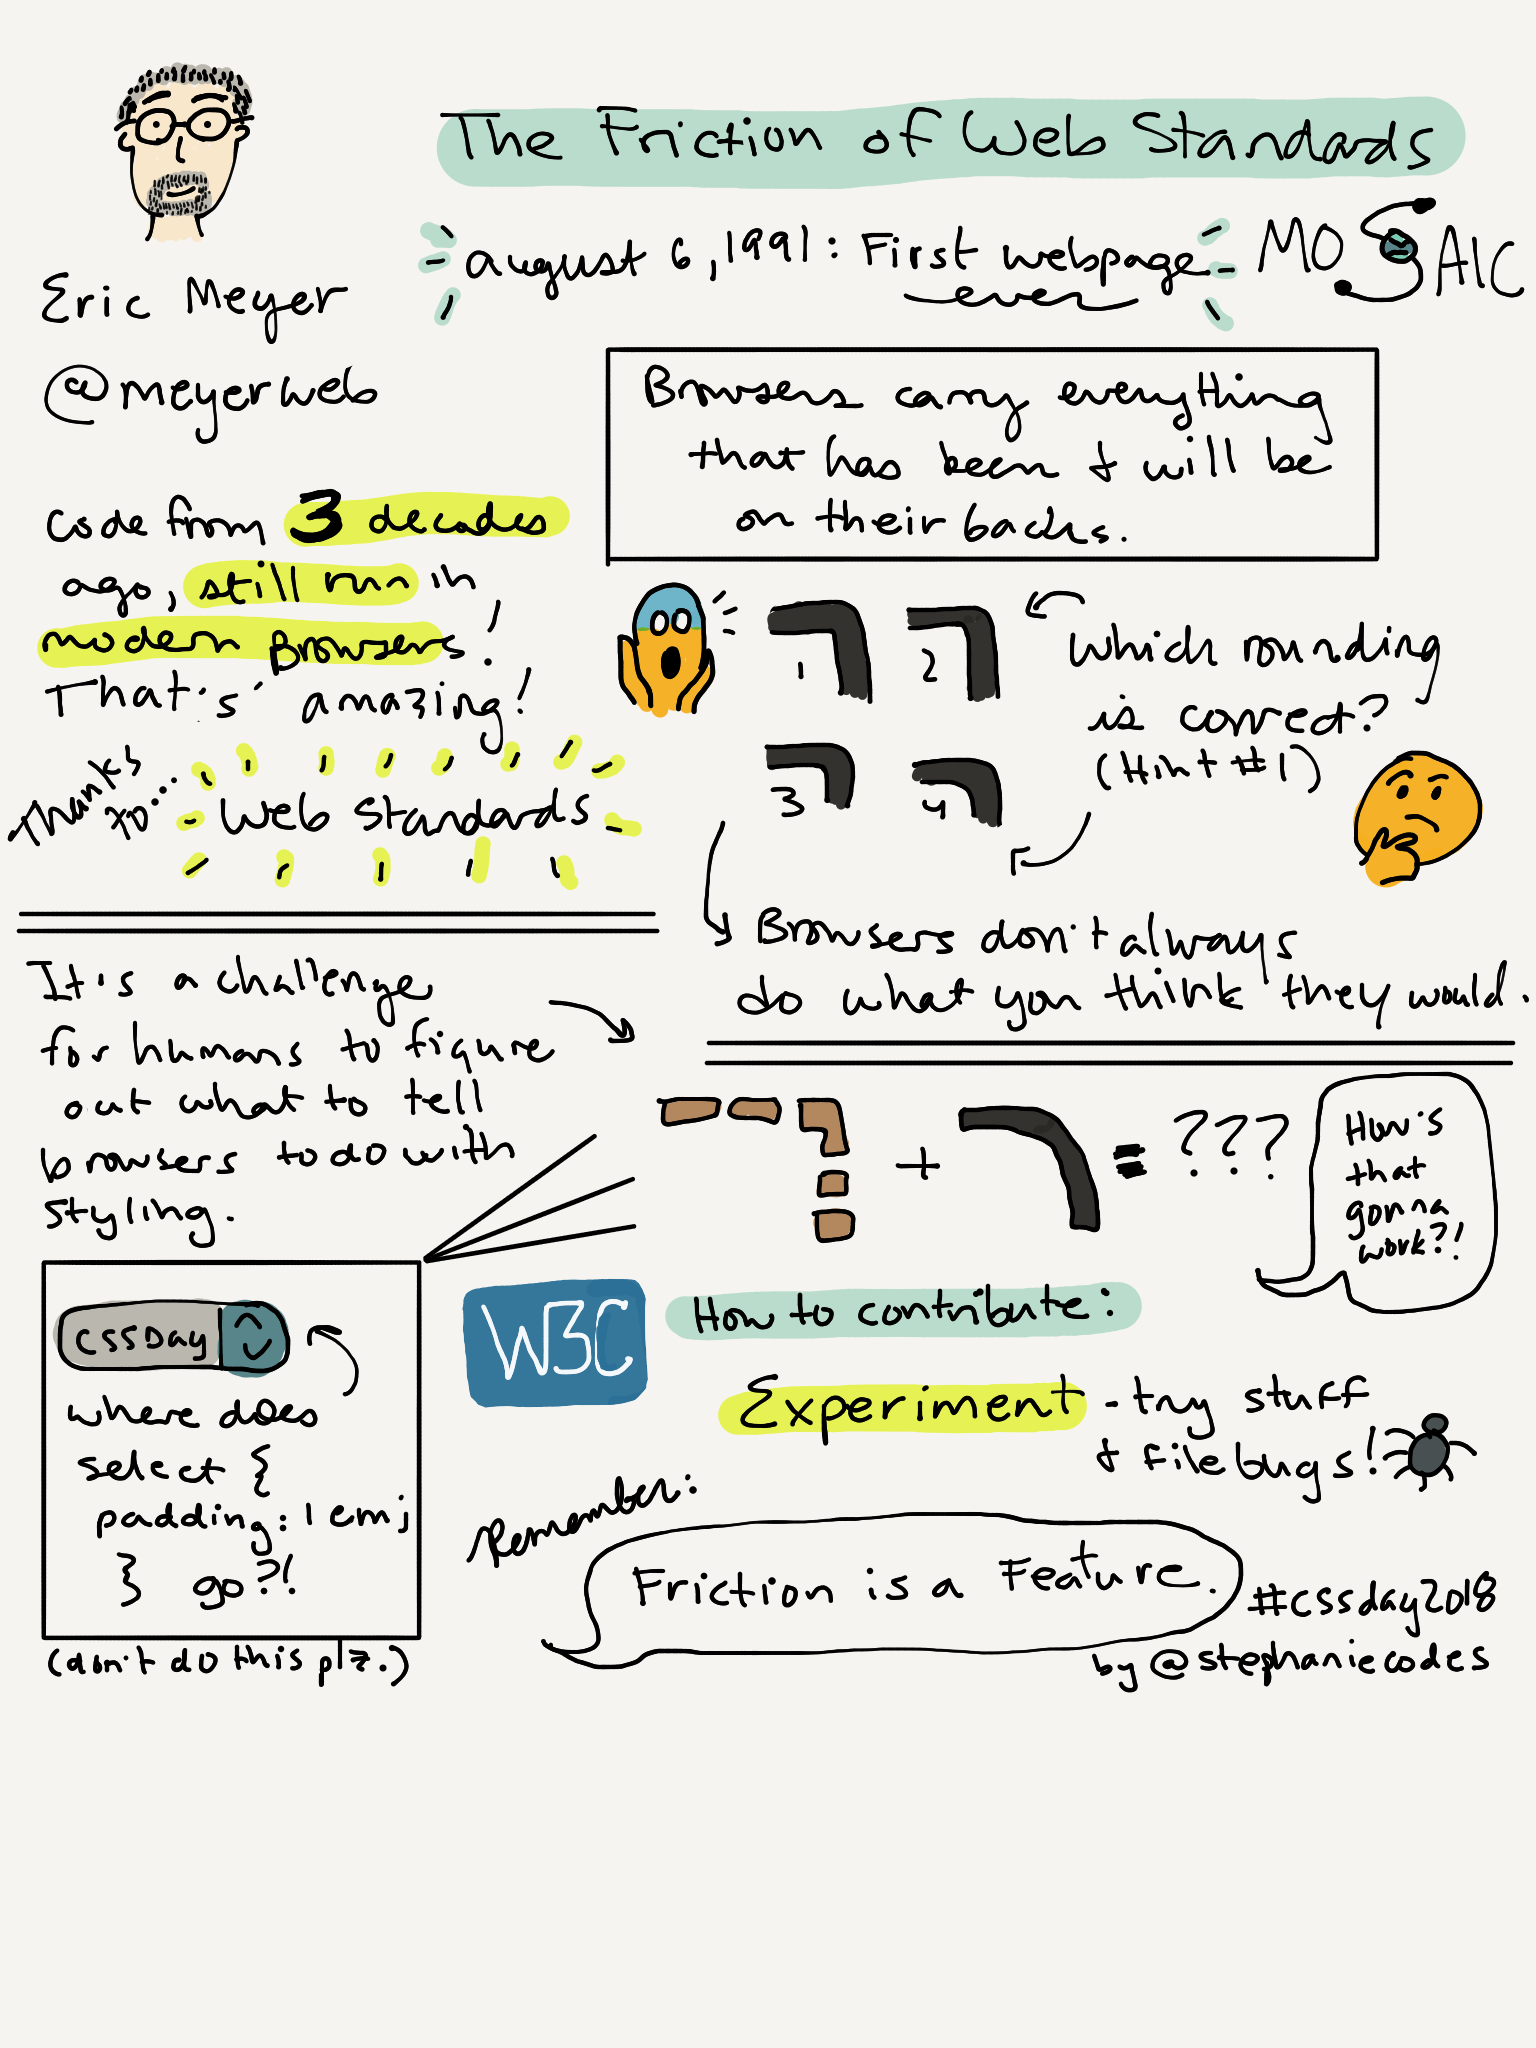 The Friction of Web Standards
Eric Meyer
@meyerweb
august 6, 1991: First webpage
ever
MOSAIC
Browsers carry everything
that has been & will be
on their backs.
code from 3 decades
ago, still run in
modern Browsers!
That's amazing!
Thanks
to...
Web Standards
1
2
3
4
which rounding
is correct?
(Hint #1)
Browsers don't always
do what you think they would.
It's a challenge
for humans to figure
out what to tell
browsers to do with
styling.
+ = ???
How's
that
gonna
work?!
CSSDay
where does
select {
padding: 1em;
} go?!
(don't do this plz.)
W3C
How to contribute:
Experiment - try stuff
& file bugs!
Remember:
Friction is a Feature.
#cssday2018
by @stephaniecodes